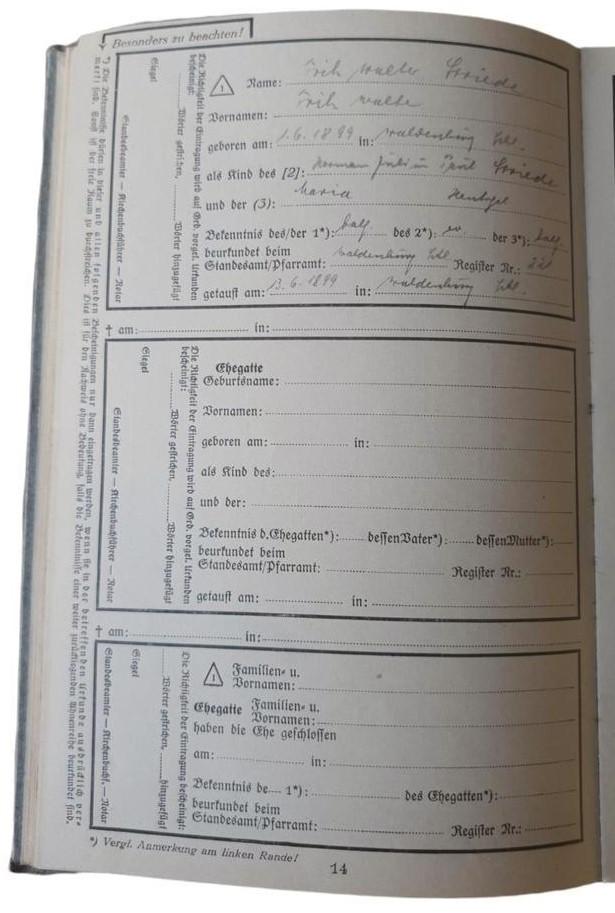 Besonders zu beachten!
*) Die Bekenntnisse dürfen in dieser und allen folgenden Bescheinigungen nur dann eingetragen werden, wenn sie in der betreffenden Urkunde ausdrücklich ver-
merkt sind. Sonst ist der freie Raum zu durchstreichen. Dies ist für den Nachweis ohne Bedeutung, falls die Bekenntnisse einer weiter zurückliegenden Ahnenreihe beurkundet sind.
Siegel
Standesbeamter — Kirchenbuchführer — Notar
Die Richtigkeit der Eintragung wird auf Grd. vorgel. Urkunden
bescheinigt:
Wörter gestrichen, Wörter hinzugefügt
1 Name: Walter
Vornamen:
geboren am: 1.6.1899 in: Waldenburg Schl.
als Kind des [2]: Herman Paul
und der (3): Maria
Bekenntnis des/der 1*): des 2*): ev. der 3*):
beurkundet beim
Standesamt/Pfarramt: Waldenburg Schl. Register Nr.:
getauft am: 13.6.1899 in: Waldenburg Schl.
† am: in:
Siegel
Standesbeamter — Kirchenbuchführer — Notar
Die Richtigkeit der Eintragung wird auf Grd. vorgel. Urkunden
bescheinigt:
Wörter gestrichen, Wörter hinzugefügt
Ehegatte
Geburtsname:
Vornamen:
geboren am: in:
als Kind des:
und der:
Bekenntnis d. Ehegatten*): dessen Vater*): dessen Mutter*):
beurkundet beim
Standesamt/Pfarramt: Register Nr.:
getauft am: in:
† am: in:
Siegel
Standesbeamter — Kirchenbuchf. — Notar
Die Richtigkeit der Eintragung bescheinigt:
Wörter gestrichen, hinzugefügt
1 Familien- u.
Vornamen:
Ehegatte Familien- u.
Vornamen:
haben die Ehe geschlossen
am: in:
Bekenntnis de 1*): des Ehegatten*):
beurkundet beim
Standesamt/Pfarramt: Register Nr.:
*) Vergl. Anmerkung am linken Rande!
14